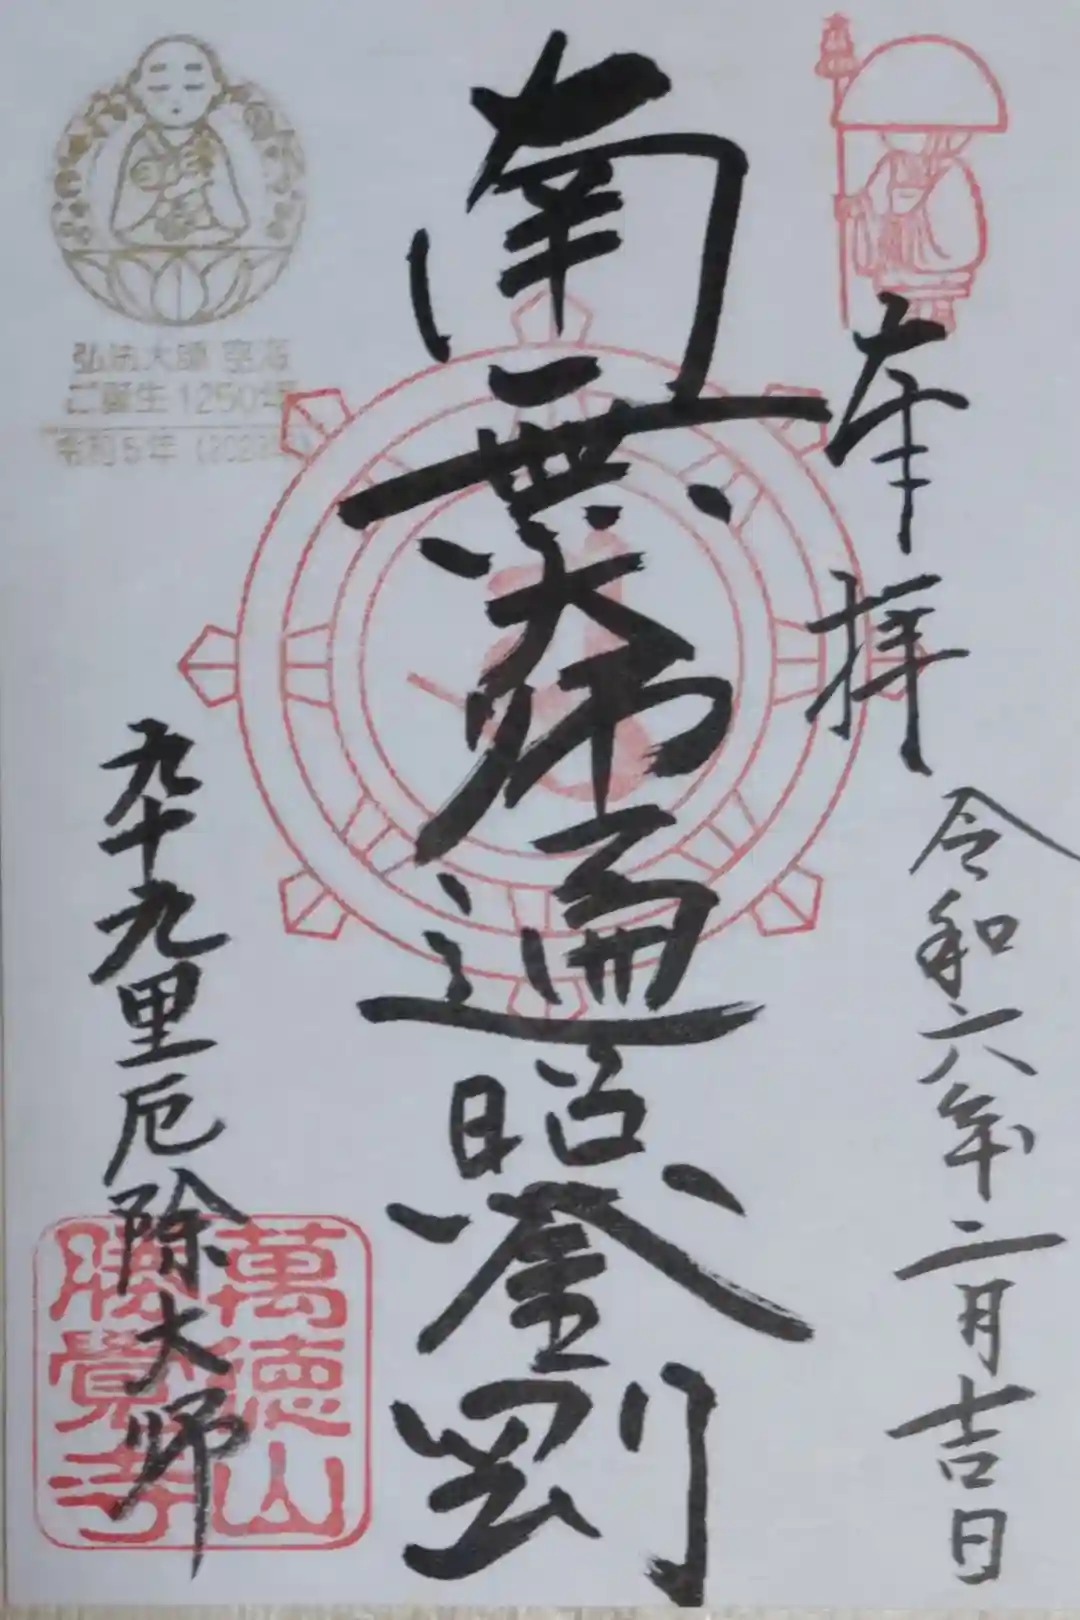 奉拝
令和六年二月吉日
南無大師遍照金剛
弘法大師 空海
ご誕生1250年
令和5年
九十九里厄除大師
萬徳山
勝覚寺